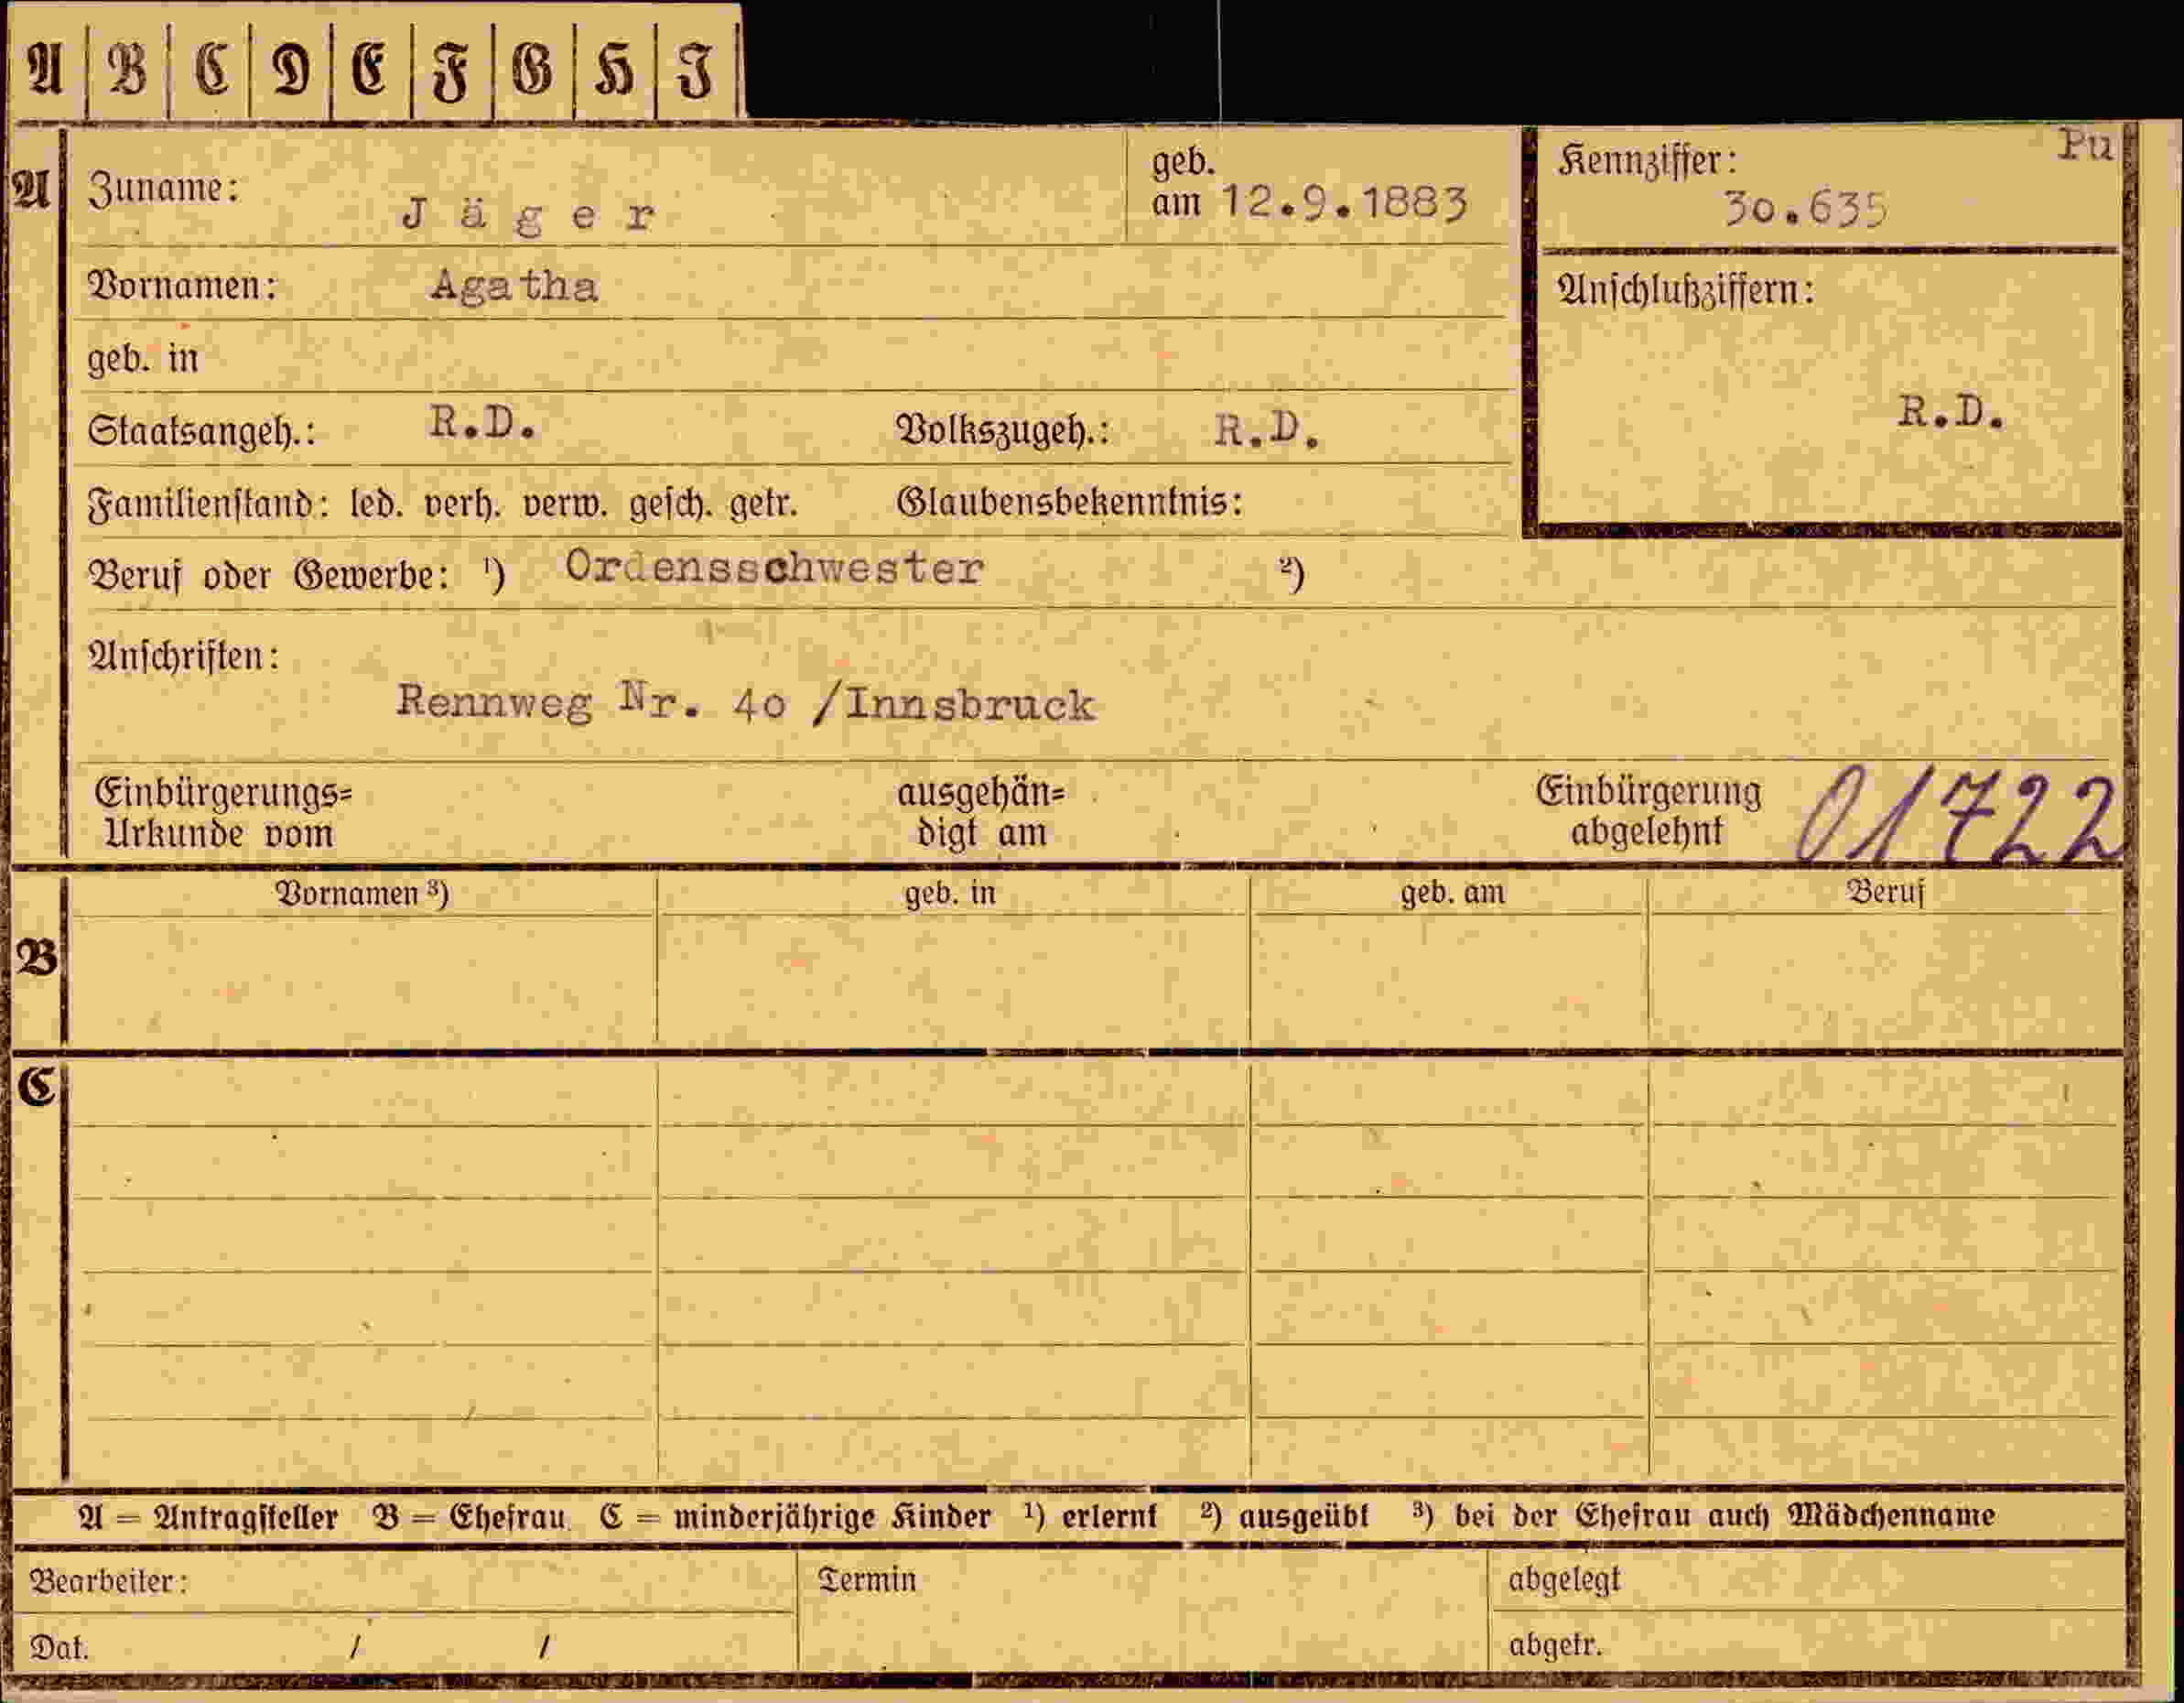 A B C D E F G H J
Pu
A Zuname: Jäger geb. am 12.9.1883 Kennziffer: 30.635
Vornamen: Agatha Anschlußziffern:
geb. in
Staatsangeh.: R.D. Volkszugeh.: R.D. R.D.
Familienstand: led. verh. verw. gesch. getr. Glaubensbekenntnis:
Beruf oder Gewerbe: ¹) Ordensschwester ²)
Anschriften:
Rennweg Nr. 40 /Innsbruck
Einbürgerungs= ausgehän= Einbürgerung 01722
Urkunde vom digt am abgelehnt
B Vornamen ³) geb. in geb. am Beruf
C
A = Antragsteller B = Ehefrau C = minderjährige Kinder ¹) erlernt ²) ausgeübt ³) bei der Ehefrau auch Mädchenname
Bearbeiter: Termin abgelegt
Dat. / / abgetr.